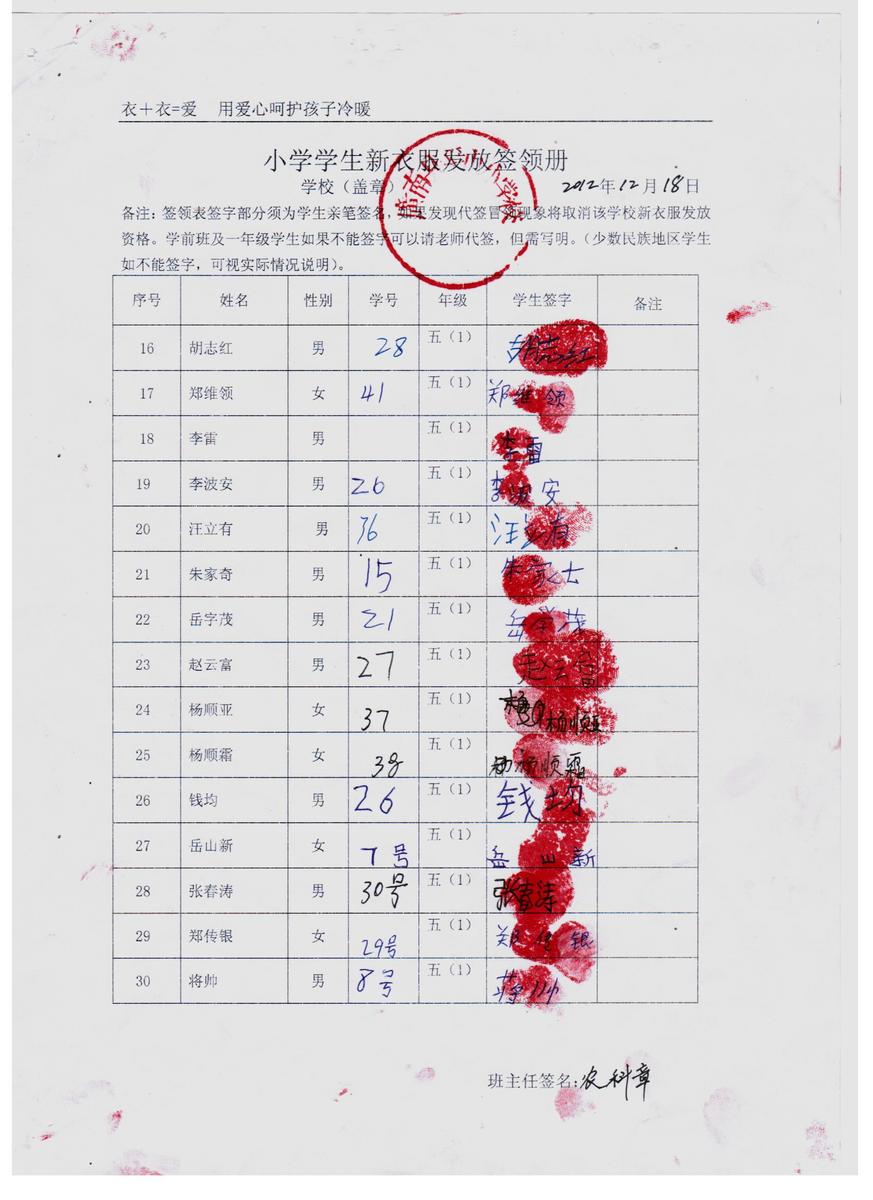 衣＋衣=爱 用爱心呵护孩子冷暖
小学学生新衣服发放签领册
学校（盖章） 2012年12月18日
备注：签领表签字部分须为学生亲笔签名，如果发现代签冒领现象将取消该学校新衣服发放
资格。学前班及一年级学生如果不能签字可以请老师代签，但需写明。（少数民族地区学生
如不能签字，可视实际情况说明）。
序号 姓名 性别 学号 年级 学生签字 备注
16 胡志红 男 28 五（1） 胡志红
17 郑维领 女 41 五（1） 郑维领
18 李雷 男 五（1） 李雷
19 李波安 男 26 五（1） 李波安
20 汪立有 男 36 五（1） 汪立有
21 朱家奇 男 15 五（1） 朱家士
22 岳字茂 男 21 五（1） 岳字茂
23 赵云富 男 27 五（1） 赵云富
24 杨顺亚 女 37 五（1） 杨顺亚
25 杨顺霜 女 38 五（1） 杨顺霜
26 钱均 男 26 五（1） 钱均
27 岳山新 女 7号 五（1） 岳山新
28 张春涛 男 30号 五（1） 张春涛
29 郑传银 女 29号 五（1） 郑传银
30 将帅 男 8号 五（1） 蒋帅
班主任签名：农科章